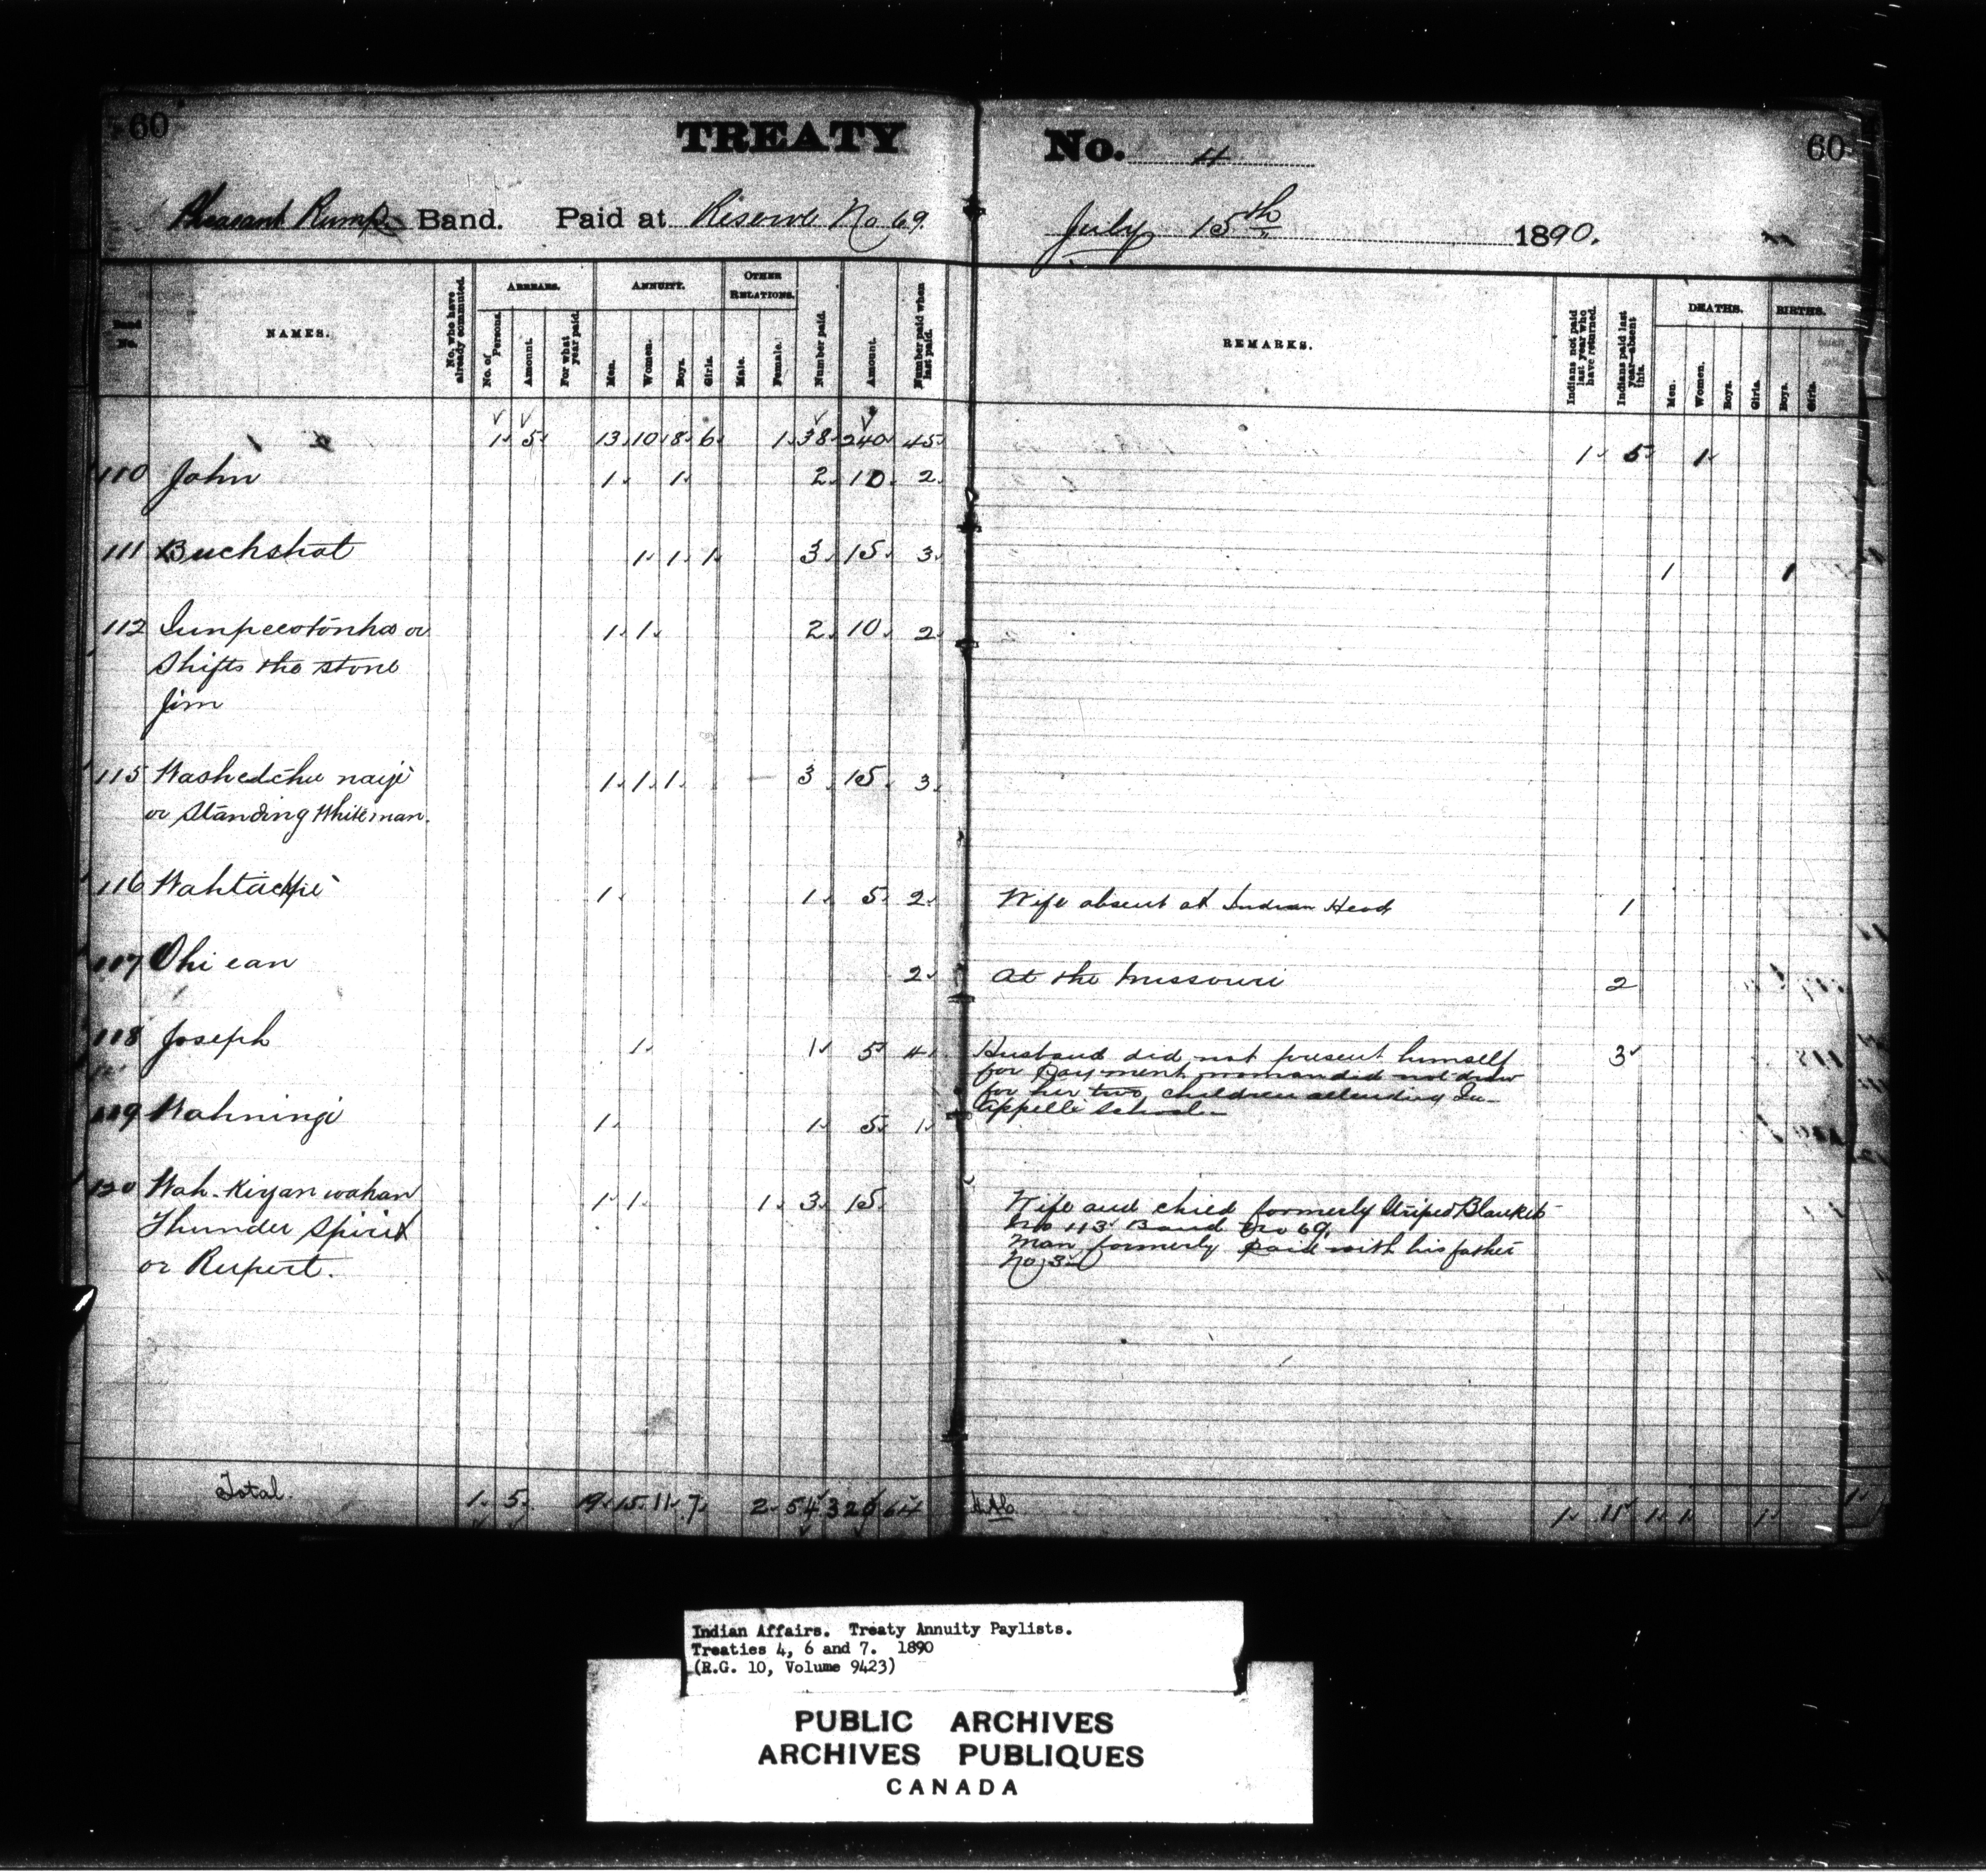 60 TREATY No. 4 60
Pheasant Rump Band. Paid at Reserve No 69. July 15th 1890.
Band No. NAMES. No. who have already commuted. ARREARS. No. of Persons. Amount. For what year paid. ANNUITY. Men. Women. Boys. Girls. OTHER RELATIONS. Male. Female. Number paid. Amount. Number paid when last paid. REMARKS. Indians not paid last year who have returned. Indians paid last year—absent this. DEATHS. Men. Women. Boys. Girls. BIRTHS. Boys. Girls.
1 5 13 10 8 6 1 38 240 45 1 5 1
110 John 1 1 2 10 2
111 Buckshot 1 1 1 3 15 3 1 1
112 or 1 1 2 10 2
Shifts the stone
Jim
115 Washedchu naiji 1 1 1 3 15 3
or Standing Whiteman.
116 1 1 5 2 Wife absent at Indian Head 1
117 Ohi ean 2 At the Missouri 2
118 Joseph 1 1 5 4 Husband did not present himself 3
for payment woman did not draw
for her two children attending Qu-
Appelle School
119 Wahningi 1 1 5 1
120 Wah-Kiyan wakan 1 1 1 3 15 Wife and child formerly Striped Blanket
No 113 Band No 69.
Thunder Spirit
Man formerly paid with his father
or Rupert.
No 3
Total. 1 5 19 15 11 7 2 54 320 64 1 11 1 1 1
Indian Affairs. Treaty Annuity Paylists.
Treaties 4, 6 and 7. 1890
(R.G. 10, Volume 9423)
PUBLIC ARCHIVES
ARCHIVES PUBLIQUES
CANADA